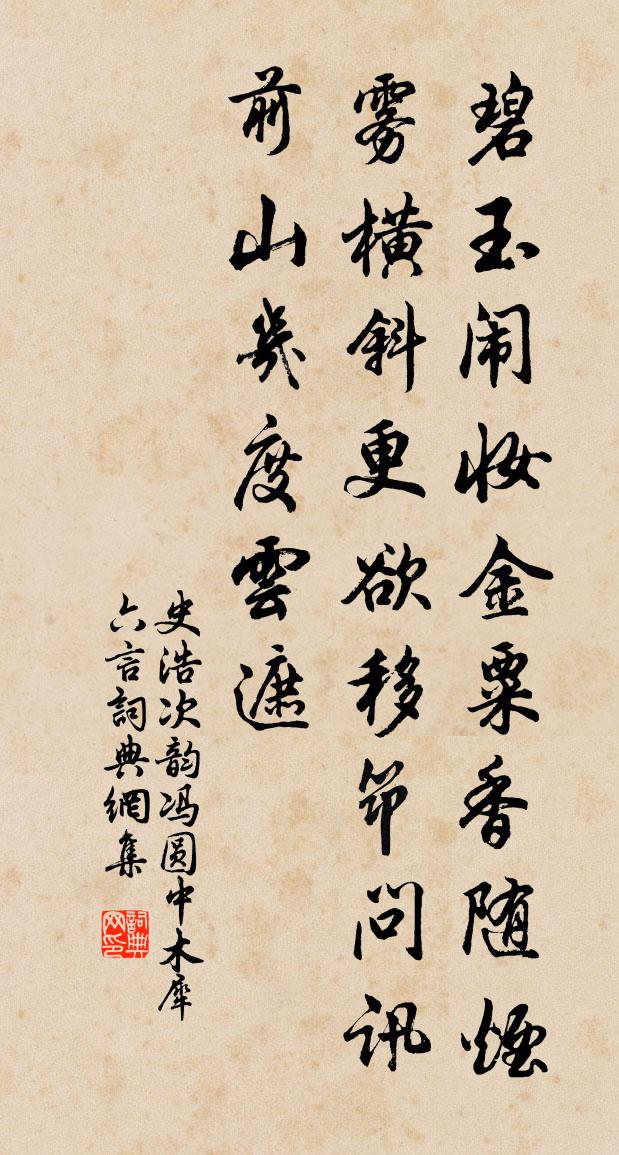 碧玉闹妆金粟香随烟
雾横斜更欲移筇问讯
前山几度雲遮
史浩次韵冯圆中木犀
六言詞典網集
詞典网印